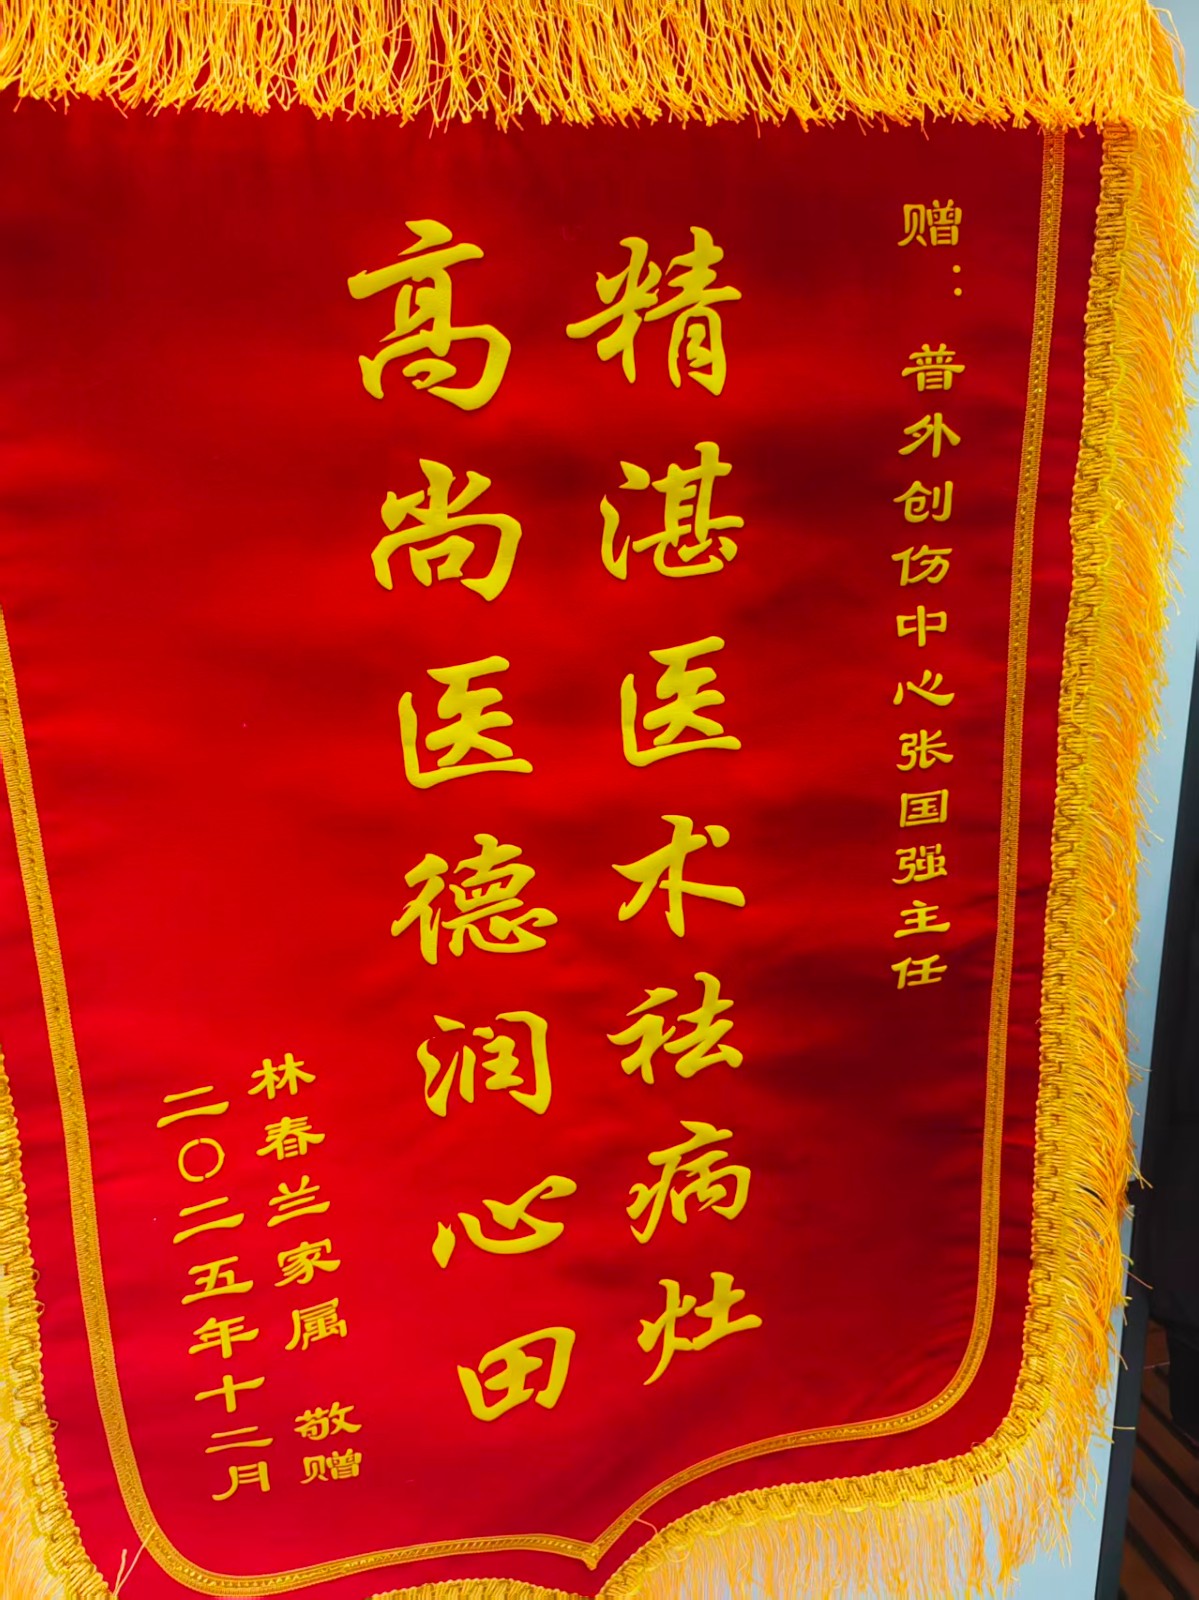 赠：普外创伤中心张国强主任
精湛医术祛病灶
高尚医德润心田
林春兰家属 敬赠
二〇二五年十二月